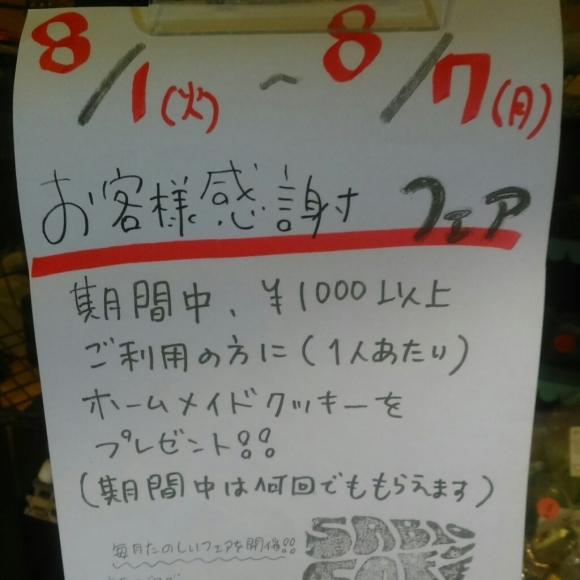 8/1(火)～8/7(月)
お客様感謝フェア
期間中、¥1000以上
ご利用の方に(1人あたり)
ホームメイドクッキーを
プレゼント!!
(期間中は何回でももらえます)
毎月たのしいフェアを開催!!